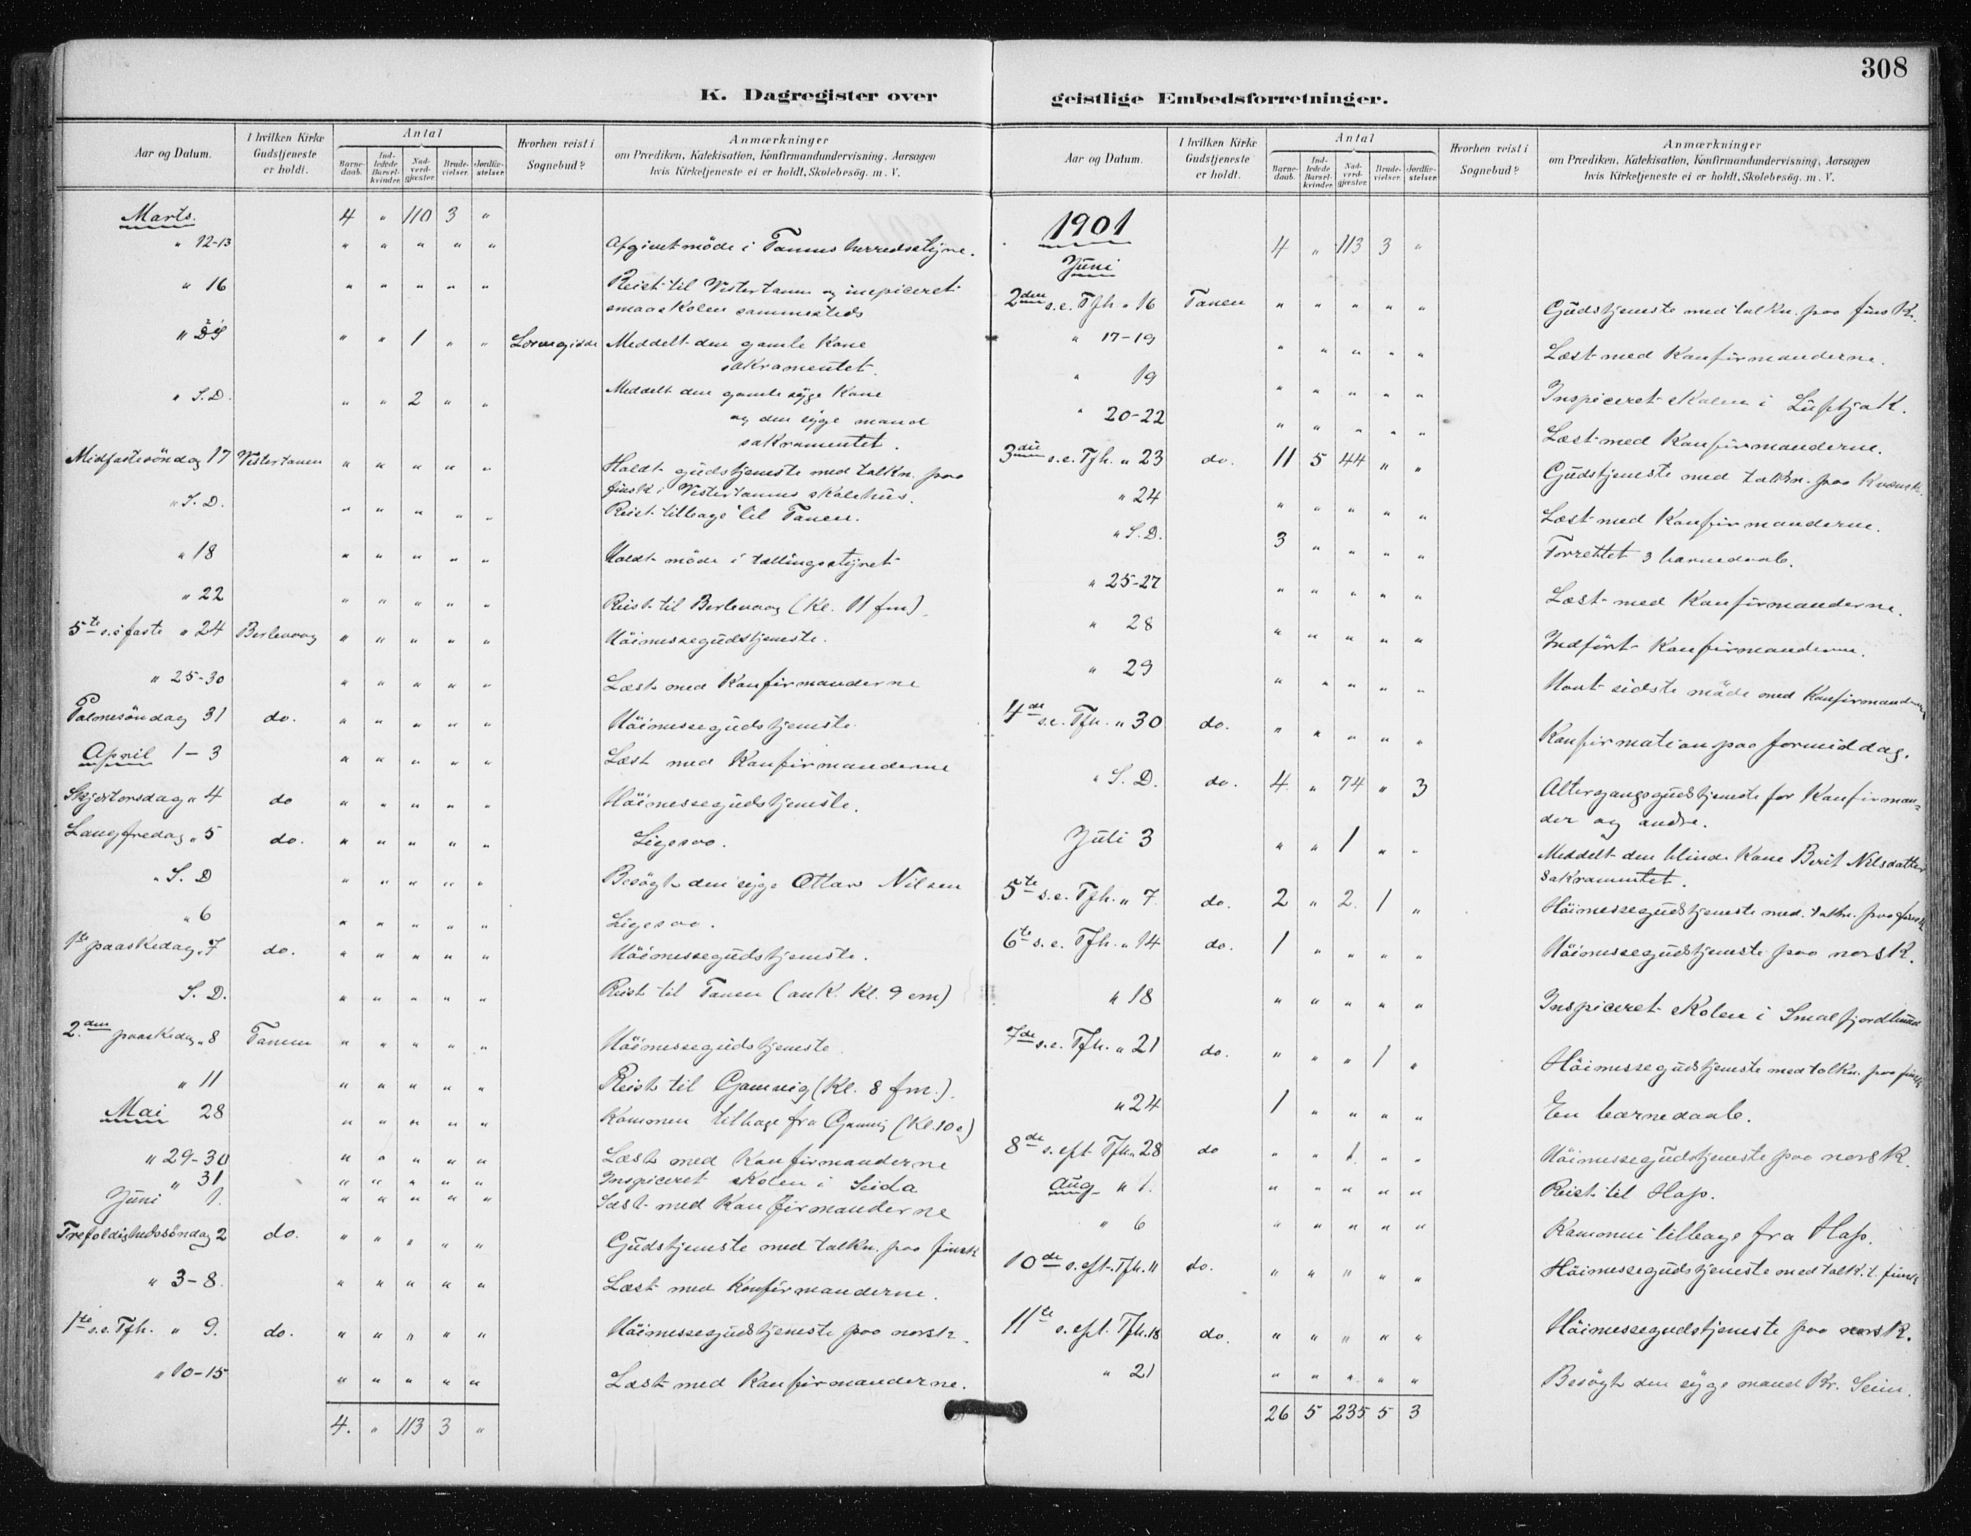 308
K. Dagregister over
Aar og Datum.
I hvilken Kirke Gudstjeneste er holdt.
Antal
Barnedaab.
Indledede Barselkvinder.
Nadverdgjæster.
Brudevielser.
Jordfæstelser.
Hvorhen reist i Sognebud?
Anmærkninger
om Prædiken, Katekisation, Konfirmandundervisning, Aarsagen
hvis Kirketjeneste ei er holdt, Skolebesøg. m. V.
Marts. 4 " 110 3 "
" 12-13 " " " " " Afgivet møde i Tanens herredsstyre.
" 16 " " " " " Reist til Vestertanen og inspiceret
smaaskolen sammesteds
" " 1 " " Meddelt den gamle Kone
sakramentet.
" S.D. " " 2 " " Meddelt den gamle syge Kone
og den syge mand
sakramentet.
Midfastesöndag 17 Vestertanen " " " " " Holdt gudstjeneste med tolkn. paa
finsk i Vestertanens skolehus.
" S.D. " " " " " Reist tilbage til Tanen.
" 18 " " " " " Holdt möde i tællingsstyret
" 22 " " " " " Reist til Berlevaag (Kl. 11 fm).
5te s. i faste " 24 Berlevaag " " " " " Höimessegudstjeneste.
" 25-30 " " " " " Læst med Konfirmanderne
Palmesöndag 31 do. " " " " " Höimessegudstjeneste
April 1-3 " " " " " Læst med Konfirmanderne
Skjærtorsdag " 4 do " " " " " Höimessegudstjeneste.
Langfredag " 5 do. " " " " " Ligesaa.
" S. D " " " " " Besögt den syge Ottar Nilsen
" 6 " " " " " Ligesaa.
1ste paaskedag " 7 do. " " " " " Höimessegudstjeneste.
S. D. " " " " " Reist til Tanen (ank. Kl. 9 em)
2.den paaskedag " 8 Tanen " " " " " Höimessegudstjeneste.
" 11 " " " " " Reist til Gamvig (Kl. 8 fm.).
Mai 28 " " " " " Kommen tilbage fra Gamvig (Kl. 10 e)
" 29-30 " " " " " Læst med Konfirmanderne
" 31 " " " " " Inspiceret skolen i Seida
Juni 1. " " " " " Læst med Konfirmanderne
Trefoldighedssöndag 2 do. " " " " " Gudstjeneste med tolkn. paa finsk
" 3-8. " " " " " Læst med Konfirmanderne.
1ste s.e. Tfh. " 9. do. " " " " " Höimessegudstjeneste paa norsk.
" 10-15 " " " " " Læst med Konfirmanderne.
4. " 113 3 "
geistlige Embedsforretninger.
Aar og Datum.
I hvilken Kirke Gudstjeneste er holdt.
Antal
Barnedaab.
Indledede Barselkvinder.
Nadverdgjæster.
Brudevielser.
Jordfæstelser.
Hvorhen reist i Sognebud?
Anmærkninger
om Prædiken, Katekisation, Konfirmandundervisning, Aarsagen
hvis Kirketjeneste ei er holdt, Skolebesøg. m. V.
1901 4 " 113 3 "
Juni
2den s.e. Tfh. " 16 Tanen " " " " " Gudstjeneste med tolkn. paa finsk.
" 17-19 " " " " " Læst med Konfirmanderne.
" 19 " " " " " Inspiceret skolen i Luftjok.
" 20-22 " " " " " Læst med Konfirmanderne.
3die s.e. Tfh. " 23 do. 11 5 44 " " Gudstjeneste med tolkn. paa Kvænsk.
" 24 " " " " " Læst med Konfirmanderne.
" S.D. 3 " " " " Forrettet 3 barnedaab.
" 25-27 " " " " " Læst med Konfirmanderne.
" 28 " " " " " Indfört Konfirmanderne.
" 29 " " " " " Havt sidste möde med Konfirmanderne
4de s.e. Tfh. " 30 do. " " " " " Konfirmation paa formiddag.
" S. D. do. 4 " 74 " 3 Altergangsgudstjeneste for Konfirman-
der og andre.
Juli 3 " " 1 " " Meddelt den blinde Kone Berit Nilsdatter
sakramentet.
5te s.e. Tfh. " 7. do. 2 " 2. 1 " Höimessegudstjeneste med tolkn. paa finsk
6te s.e. Tfh. " 14 do. 1 " " " " Höimessegudstjeneste paa norsk.
" 18 " " " " " Inspiceret skolen i Smalfjordbund
7de s.e. Tfh. " 21 do. " " " 1 " Höimessegudstjeneste med tolkn. paa finsk
" 24 1 " " " " En barnedaab.
8de s. eft. Tfh. " 28 do " " 1. " " Höimessegudstjeneste paa norsk.
Aug. " 1. " " " " " Reist til Hop.
" 6 " " " " " Kommen tilbage fra Hop.
10de s. eft. Tfh. 11 do. " " " " " Höimessegudstjeneste med tolk. t. finsk
11te s. eft. Tfh. 18 do. " " " " " Höimessegudstjeneste paa norsk.
" 21 " " " " " Besögt den syge mand Kr. Seim.
26 5 235 5 3